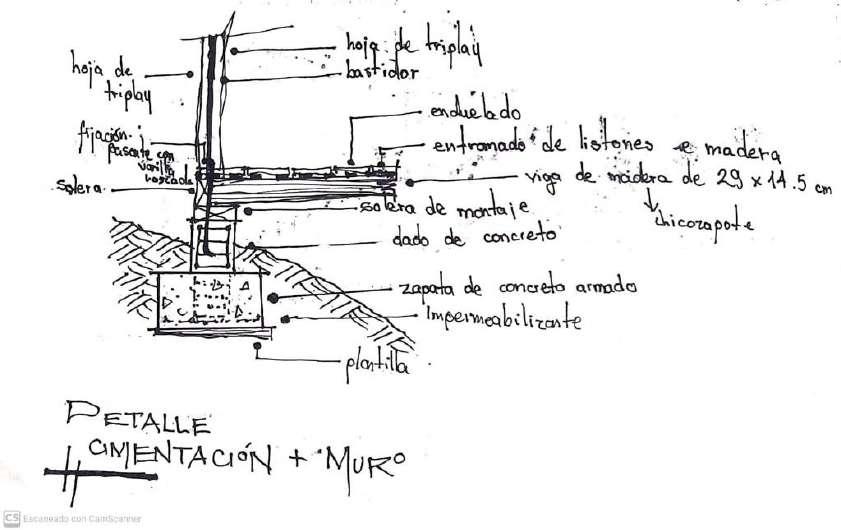 hoja de triplay
bastidor
hoja de
triplay
enduelado
fijación
pasante con
varilla
roscada
entramado de listones e madera
viga de madera de 29 x 14.5 cm
chicozapote
solera
solera de montaje
dado de concreto
zapata de concreto armado
Impermeabilizante
plantilla
DETALLE
CIMENTACIÓN + MURO
CS Escaneado con CamScanner